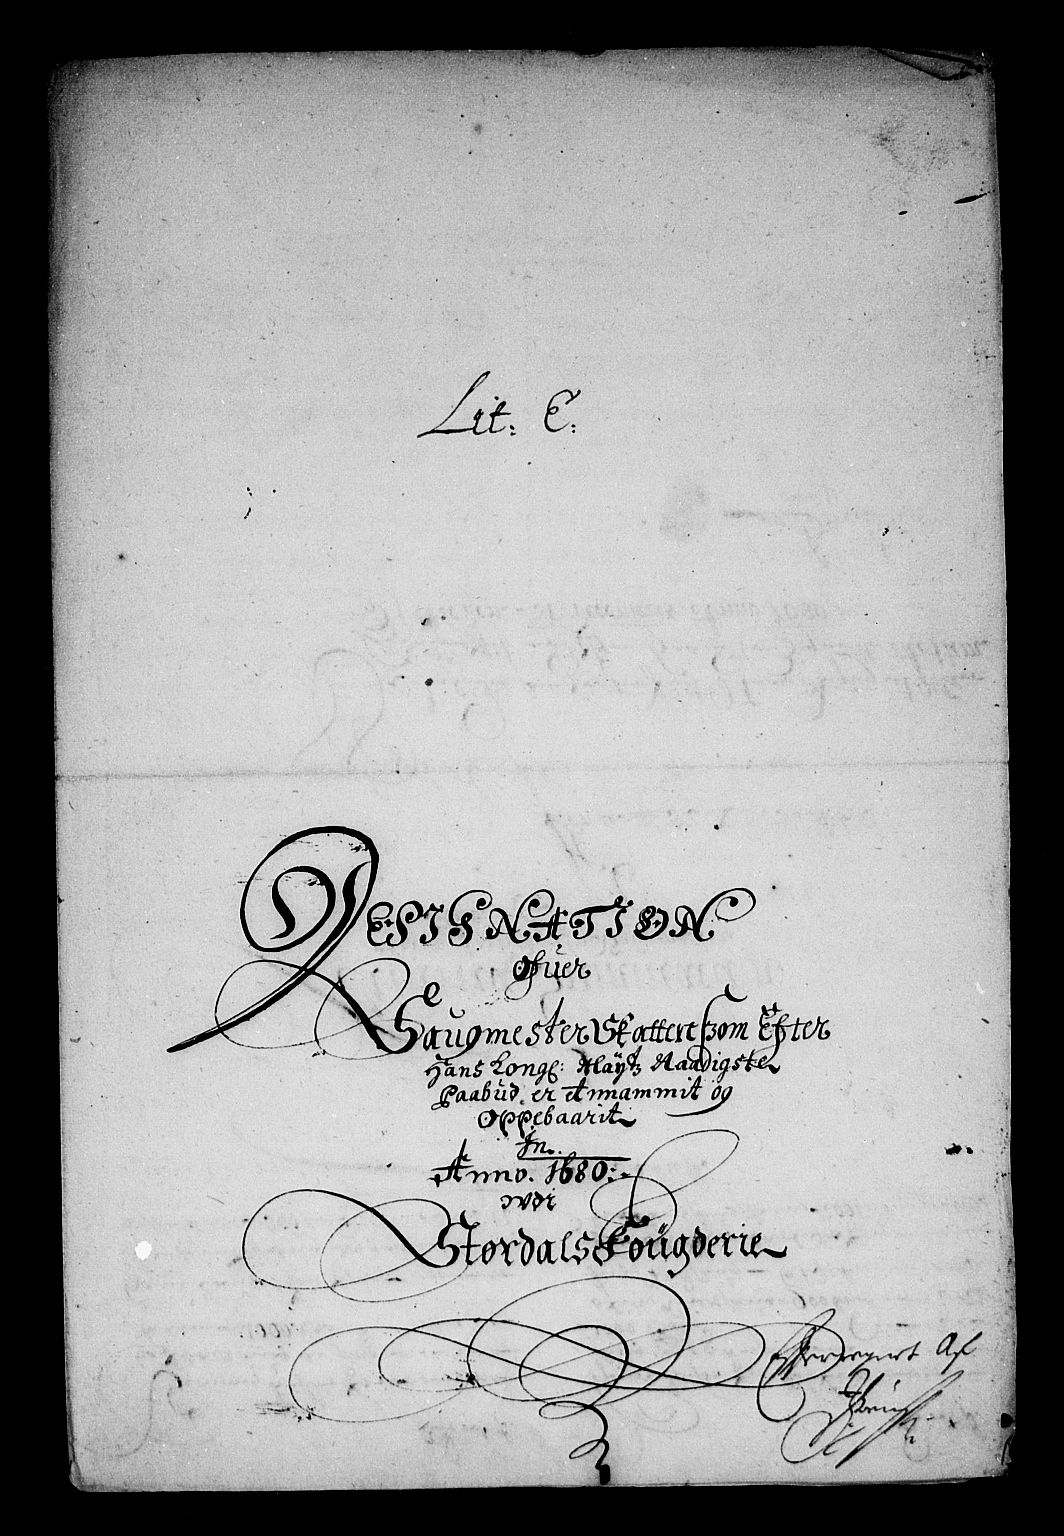 Lit: C:
DESIGNATION
Ofüer
Saugmester Skattere som Efter
Hans Kongl: Maÿtz Naadigste
Paabüd er Annammit og
Oppebaarit
In
Anno. 1680:
Stordals Fougderie
Af